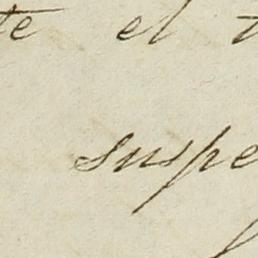 te el t
suspe